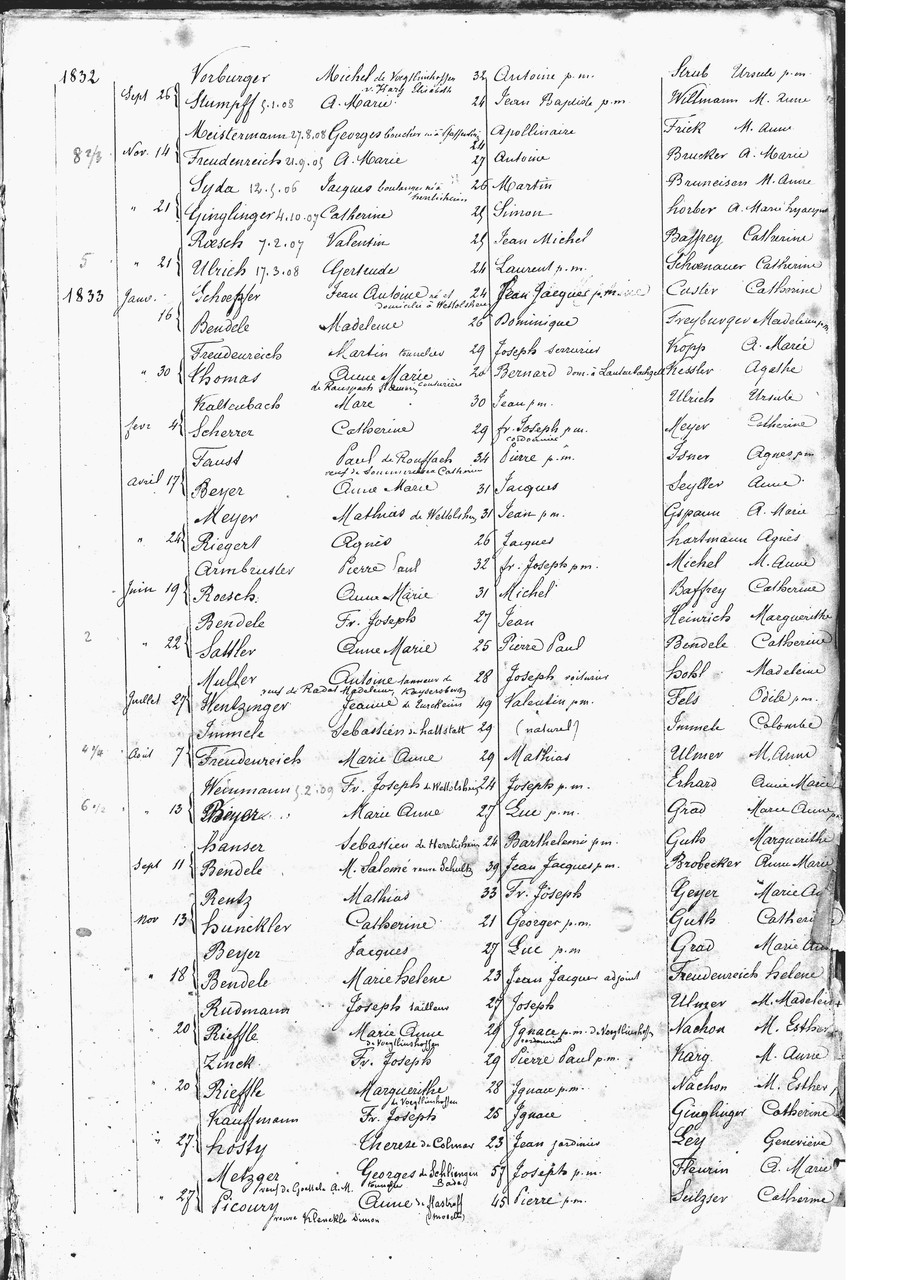 1832 Vorburger Michel de Voegtlinshoffen 32 Antoine p.m. Strub Ursule p.m.
v. Harz Elisabeth
Sept 26 Stumpff 5.1.08 A. Marie 24 Jean Baptiste p.m. Willmann M. Anne
Meistermann 27.8.08 Georges boucher né à Pfaffenheim 24 Apollinaire Frick M. Anne
8 2/3 Nov. 14 Freudenreich 21.9.05 A. Marie 27 Antoine Brucker A. Marie
Syda 12.5.06 Jacques boulanger né à 26 Martin Bruneisen M. Anne
herrlisheim
" 21 Ginglinger 4.10.07 Catherine 25 Simon horber A. Marie
Roesch 7.2.07 Valentin 25 Jean Michel Baffrey Catherine
5 " 21 Ulrich 17.3.08 Gertrude 24 Laurent p.m. Schoenauer Catherine
1833 Janv. Schoepfer Jean Antoine né et 24 Jean Jacques p.m. Custer Catherine
domicilié à Wettolsheim
16 Bendele Madeleine 26 Dominique Freyburger Madeleine p.m.
Freudenreich Martin tonnelier 29 Joseph serrurier Kopp A. Marie
" 30 Thomas Anne Marie 20 Bernard dom. à Lautenbachzell Kessler Agathe
de Ranspach couturière
Kaltenbach Marc 30 Jean p.m. Ulrich Ursule
fevr 4 Scherrer Catherine 29 fr. Joseph p.m. Meyer Catherine
cordonnier
Faust Paul de Rouffach 34 Pierre p.m. Isner Agnes p.m
veuf de Catherine
Avril 17 Beyer Anne Marie 31 Jacques Seyller Anne
Meyer Mathias de Wettolsheim 31 Jean p.m. Gspann A. Marie
" 24 Riegert Agnès 26 Jacques hartmann Agnès
Armbruster Pierre Paul 32 fr. Joseph p.m. Michel M. Anne
Juin 19 Roesch Anne Marie 31 Michel Baffrey Catherine
Bendele Fr. Joseph 27 Jean Heinrich Marguerithe
2 " 22 Sattler Anne Marie 25 Pierre Paul Bendele Catherine
Muller Antoine tanneur de 28 Joseph voiturier hohl Madeleine
veuf de Madeleine, Kaysersberg
Juillet 27 Hentzinger Jeanne de Turckheim 49 Valentin p.m. Fels Odile p.m.
Immele Sebastien de hattstatt 29 (naturel) Immele Colombe
4 3/4 Août 7 Freudenreich Marie Anne 29 Mathias Ulmer M. Anne
Weinmann 5.2.09 Fr. Joseph de Wettolsheim 24 Joseph p.m. Erhard Anne Marie
6 " 13 Beyer Marie Anne 27 Luc p.m. Grad Marie Anne p.m.
hanser Sebastien de Herrlisheim 24 Barthelemi p.m. Guth Marguerithe
Sept 11 Bendele M. Salomé veuve Schultz 39 Jean Jacques p.m. Brobecker Anne Marie
Rentz Mathias 33 Fr. Joseph Geyer Marie
Nov 13 hunckler Catherine 21 Georges p.m. Guth Catheri
Beyer Jacques 27 Luc p.m Grad Marie Anne
" 18 Bendele Marie helene 23 Jean Jacques adjoint Freudenreich helene
Rudmann Joseph tailleur 27 Joseph Ulmer M. Madelein
" 20 Rieffle Marie Anne 29 Ignace p.m. de Voegtlinshoffen Nachon M. Esther
de Voegtlinshoffen cordonnier
Zinck Fr. Joseph 29 Pierre Paul p.m. Karg M. Anne
" 20 Rieffle Marguerithe 28 Ignace p.m. Nachon M. Esther
de Voegtlinshoffen
Kauffmann Fr. Joseph 25 Ignace Ginglinger Catherine
" 27 hosty Therese de Colmar 23 Jean jardinier Ley Geneviève
Metzger Georges de Schliengen 57 Joseph p.m. Fleurin A. Marie
veuf de A. M. tonnelier Bade
" 27 Picoury Anne de Hastroff 45 Pierre p.m. Seilzser Catherine
veuve Klenckle Simon (Moselle)